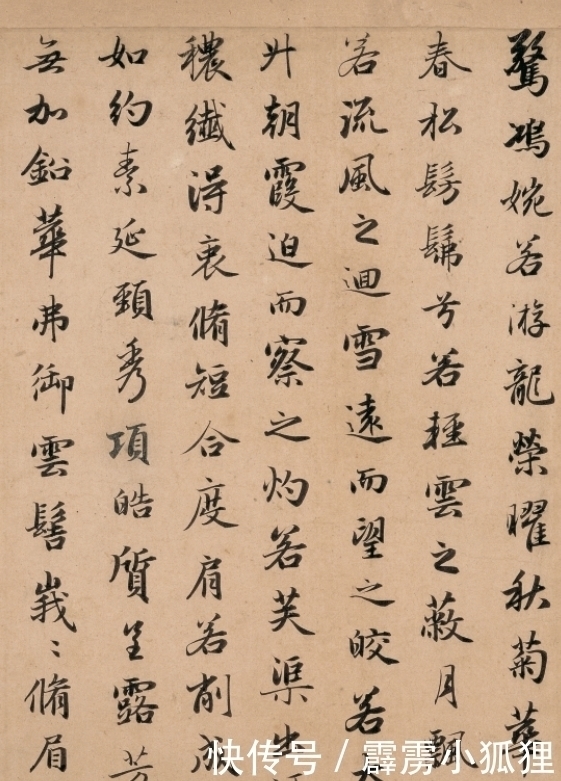 驚鴻婉若游龍榮曜秋菊華
春松髣髴兮若輕雲之蔽月飄
若流風之迴雪遠而望之皎若
升朝霞迫而察之灼若芙渠出
穠纖得衷脩短合度肩若削成
如約素延頸秀項皓質呈露芳
無加鉛華弗御雲髻峩〻脩眉
快传号 / 霹雳小狐狸